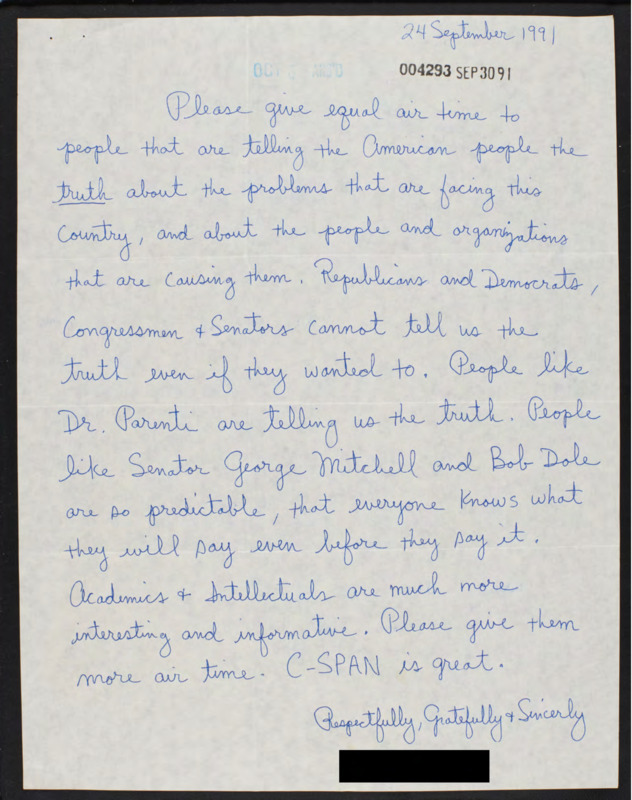 24 September 1991
004293 SEP 30 91
Please give equal air time to
people that are telling the American people the
truth about the problems that are facing this
Country, and about the people and organizations
that are causing them. Republicans and Democrats,
Congressmen & Senators cannot tell us the
truth even if they wanted to. People like
Dr. Parenti are telling us the truth. People
like Senator George Mitchell and Bob Dole
are so predictable, that everyone knows what
they will say even before they say it.
Academics & Intellectuals are much more
interesting and informative. Please give them
more air time. C-SPAN is great.
Respectfully, Gratefully & Sincerly